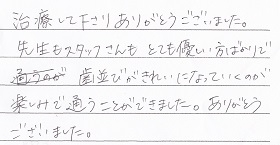 治療して下さりありがとうございました。
先生もスタッフさんもとても優しい方ばかりで
通うのが 歯並びがきれいになっていくのが
楽しみで通うことができました。ありがとう
ございました。